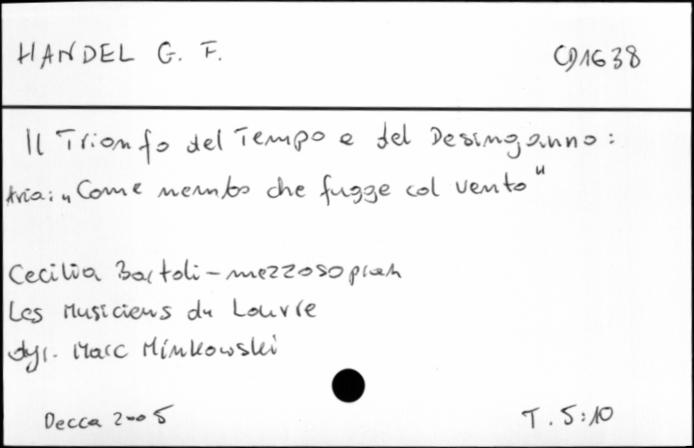 HANDEL G. F.
CD1638
Il Trionfo del Tempo e del Desinganno:
Aria: „Come nembo che fugge col vento"
Cecilia Bartoli - mezzosopran
Les Musiciens du Louvre
dyr. Marc Minkowski
Decca 2005
T. 5:10